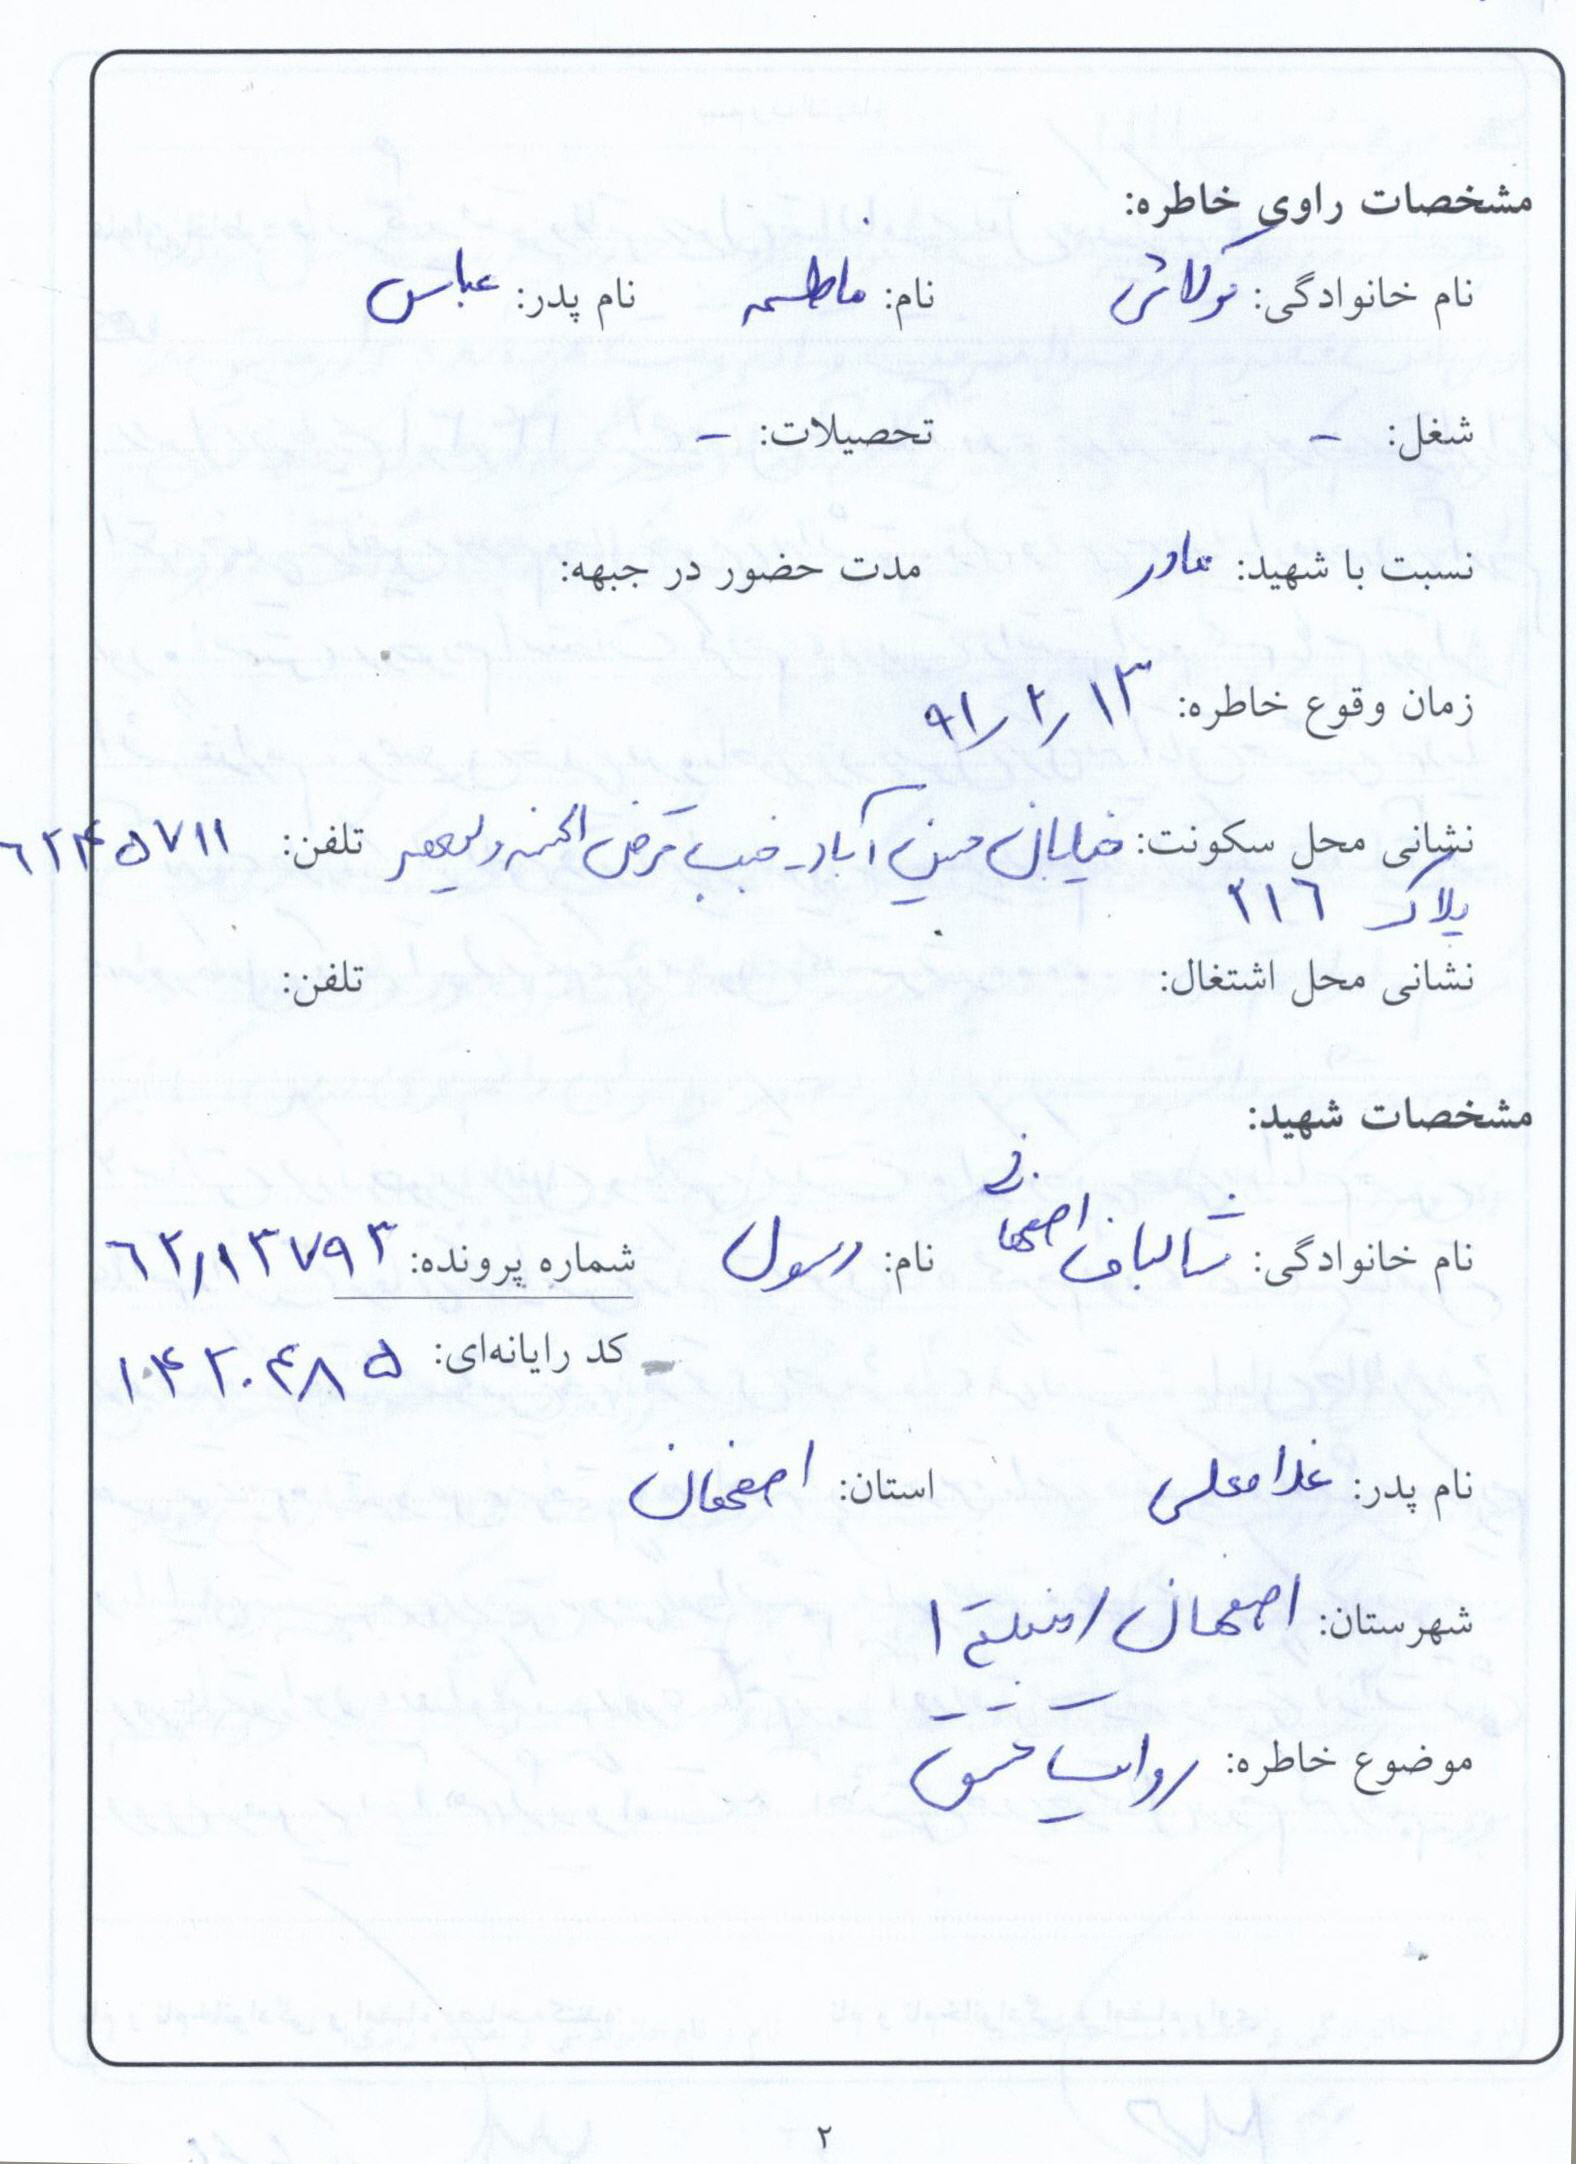 مشخصات راوی خاطره:
نام خانوادگی: توکلائی نام: فاطمه نام پدر: عباس
شغل: - تحصیلات: -
نسبت با شهید: مادر مدت حضور در جبهه:
زمان وقوع خاطره: ۹۱/۲/۱۳
نشانی محل سکونت: خیابان حسین آباد - جنب قرض الحسنه ولیعصر تلفن: ۶۲۴۵۷۱۱
پلاک ۲۱۶
نشانی محل اشتغال: تلفن:
مشخصات شهید:
نام خانوادگی: شالباف اصفهانی نام: رسول شماره پرونده: ۶۲/۱۳۷۹۳
کد رایانه‌ای: ۱۰۴۲۰۴۸۵
نام پدر: غلامعلی استان: اصفهان
شهرستان: اصفهان / منطقه ۱
موضوع خاطره: روایت عشق
۲